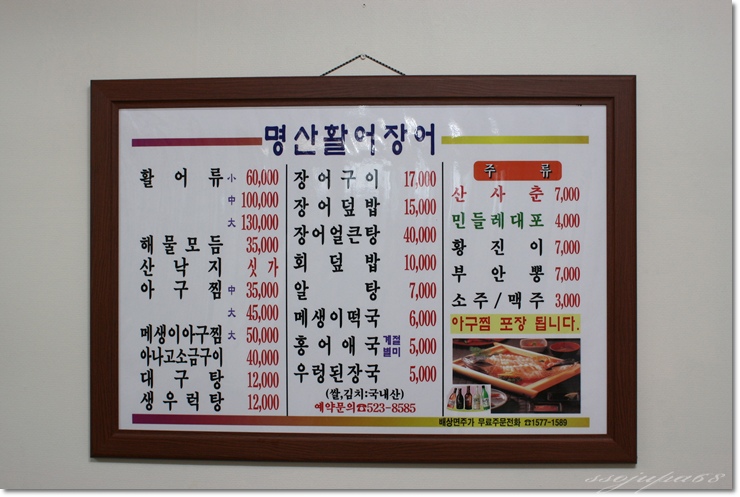 명산활어장어
활어류 小 60,000
中 100,000
大 130,000
해물모듬 35,000
산낙지 싯가
아구찜 中 35,000
大 45,000
메생이아구찜 大 50,000
아나고소금구이 40,000
대구탕 12,000
생우럭탕 12,000
장어구이 17,000
장어덮밥 15,000
장어얼큰탕 40,000
회덮밥 10,000
알탕 7,000
메생이떡국 6,000
홍어애국 계절별미 5,000
우렁된장국 5,000
(쌀,김치:국내산)
예약문의☎523-8585
주류
산사춘 7,000
민들레대포 4,000
황진이 7,000
부안뽕 7,000
소주/맥주 3,000
아구찜 포장 됩니다.
배상면주가 무료주문전화 ☎1577-1589
ssojupa68